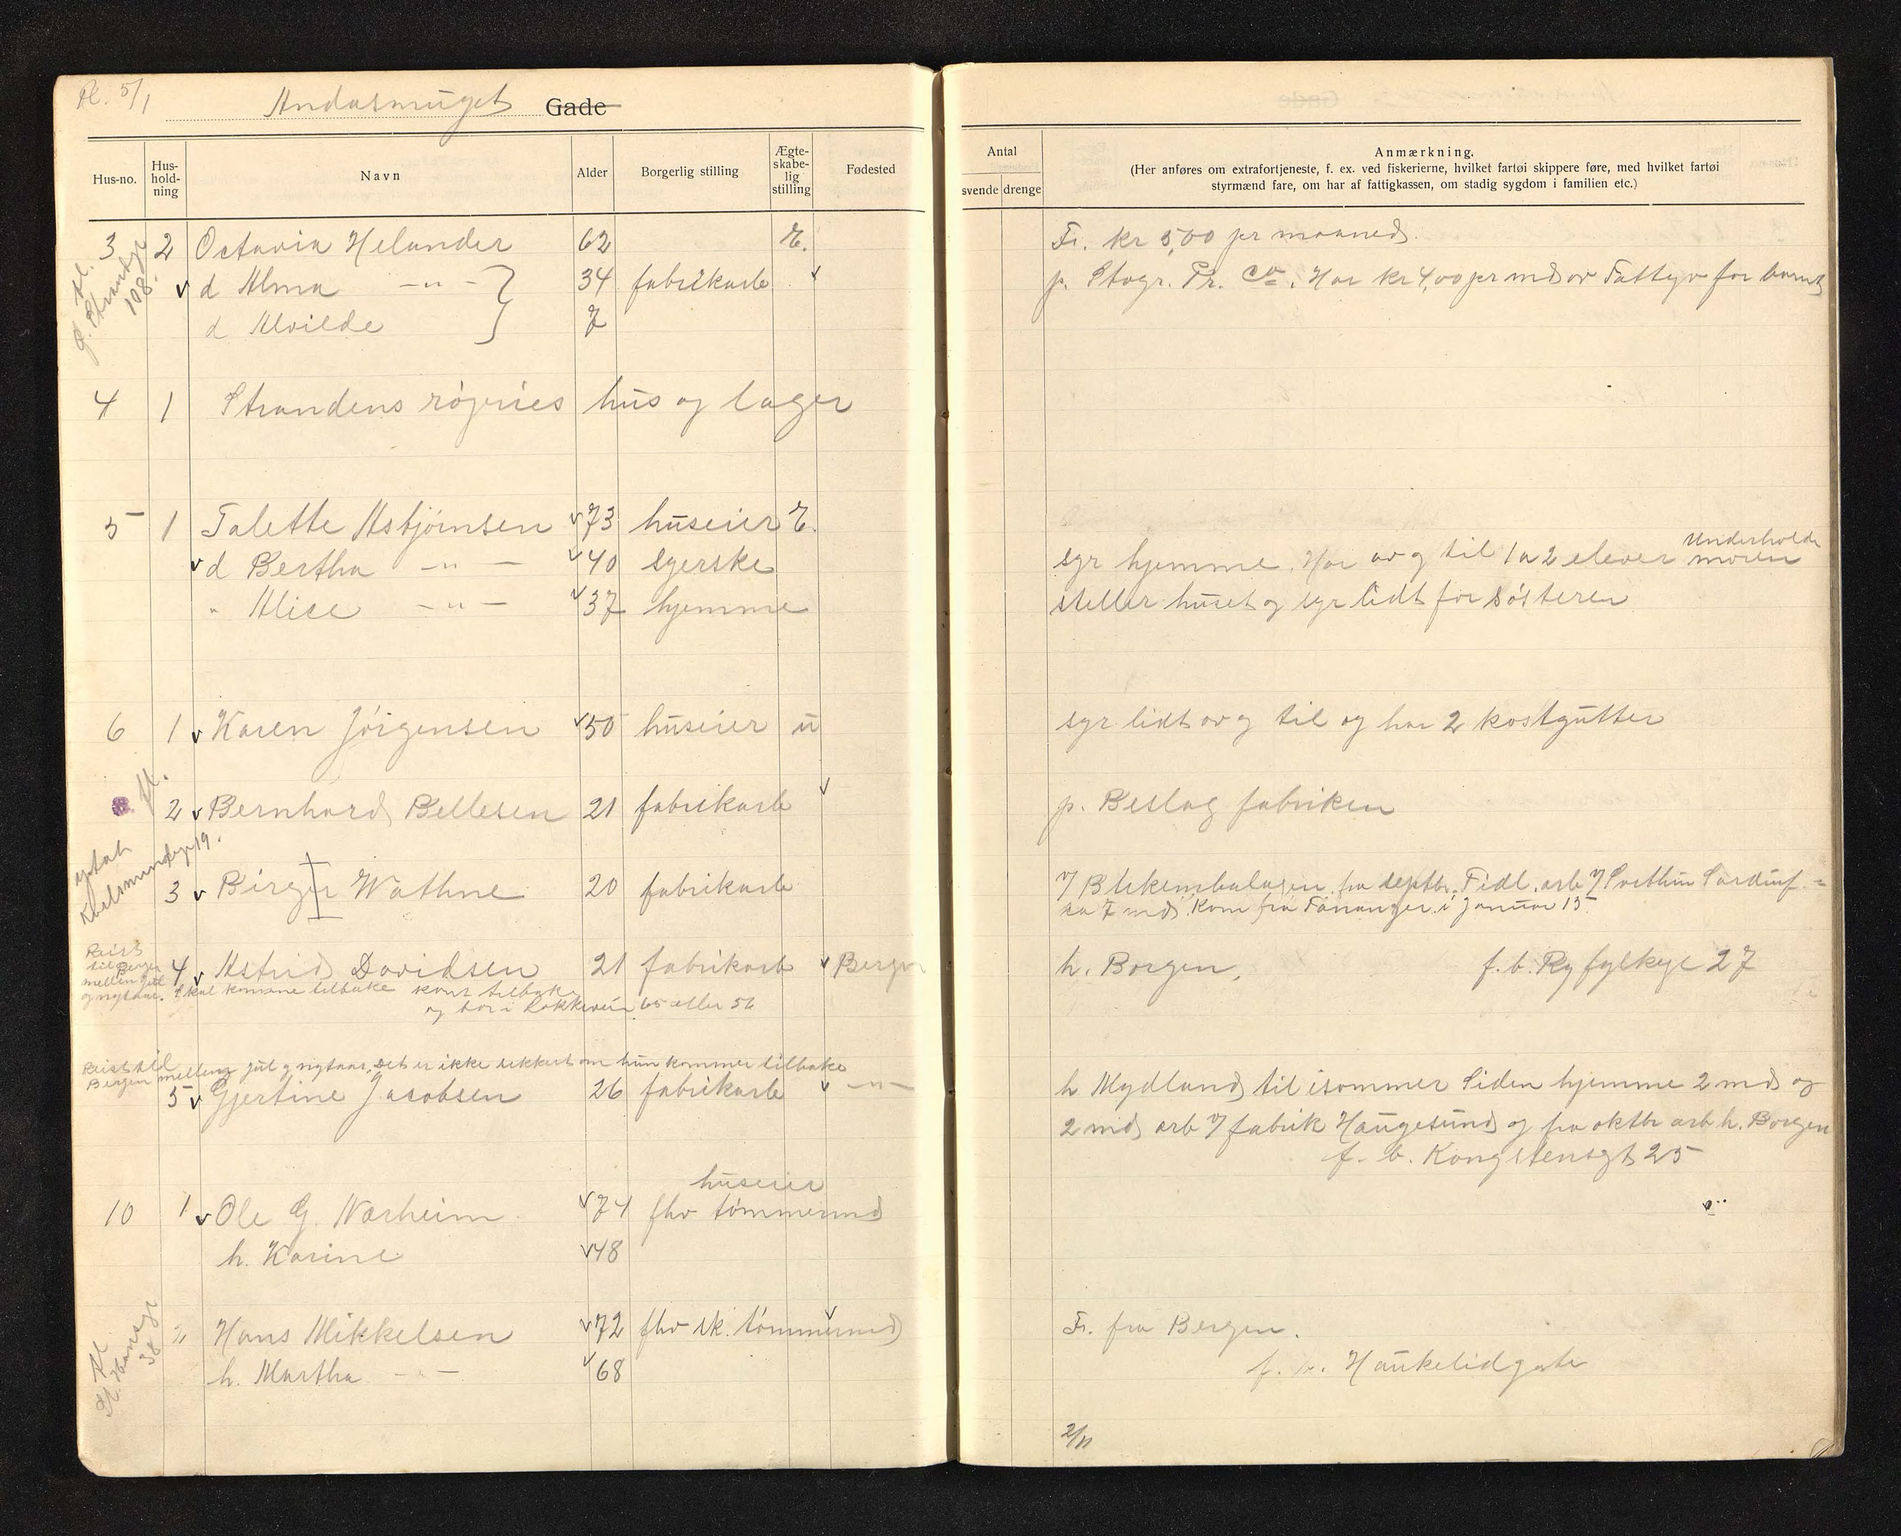 Fl. 5/1
Andasmuget Gade
Hus-no. Hus-hold-ning Navn Alder Borgerlig stilling Ægte-skabe-lig stilling Fødested
Antal svende drenge
Anmærkning.
(Her anføres om extrafortjeneste, f. ex. ved fiskerierne, hvilket fartøi skippere føre, med hvilket fartøi
styrmænd fare, om har af fattigkassen, om stadig sygdom i familien etc.)
3 2 Octavia Helander 62 E. Fr. kr 5,00 pr maaned.
fl. Strandgt 108.
d Alma -"- 34 fabrikarb p. Stavgr. Pr. Co. Har kr 4,00 pr md av Fattigv for barnet
d Alvilde 7
4 1 Strandens røgeries hus og lager
5 1 Talette Asbjørnsen 73 huseier E.
d Bertha -"- 40 syerske syr hjemme. Har av og til 1 a 2 elever Underholder moren
" Alice -"- 37 hjemme steller huset og syr lidt for søsteren
6 1 Karen Jörgensen 50 huseier u syr lidt av og til og har 2 kostgutter
fl.
2 Bernhard Bellesen 21 fabrikarb p. Beslag fabriken
Karlsmindegt 19.
3 Birger Wathne 20 fabrikarb. i/ Blikembalagen fra septbr. Tidl. arb i/ Svithun Sardinf.
ca 7 md. Kom fra Tananger i Januar 15
Reist til Bergen mellem jul og nytaar.
4 Astrid Davidsen 21 fabrikarb Bergen h. Borgen. f. b. Ryfylkegt 27
Skal komme tilbake kom tilbake
og bor i Løkkevein 65 eller 56
Reist til Bergen mellem jul og nytaar. Det er ikke sikkert om hun kommer tilbake
5 Gjertine Jacobsen 26 fabrikarb -"- h Mydland til isommer Siden hjemme 2 md og
2 md arb i/ fabrik Haugesund og fra oktbr arb h. Borgen
f. b. Kongstensgt 25
huseier
10 1 Ole G. Warheim 74 fhv tømmermd
h. Karine 48
2 Hans Mikkelsen 72 fhv sk. tømmermd Fr. fra Bergen.
fl St. Hansgt 38
h. Martha -"- 68 f. b. Haukelidgate
2/11